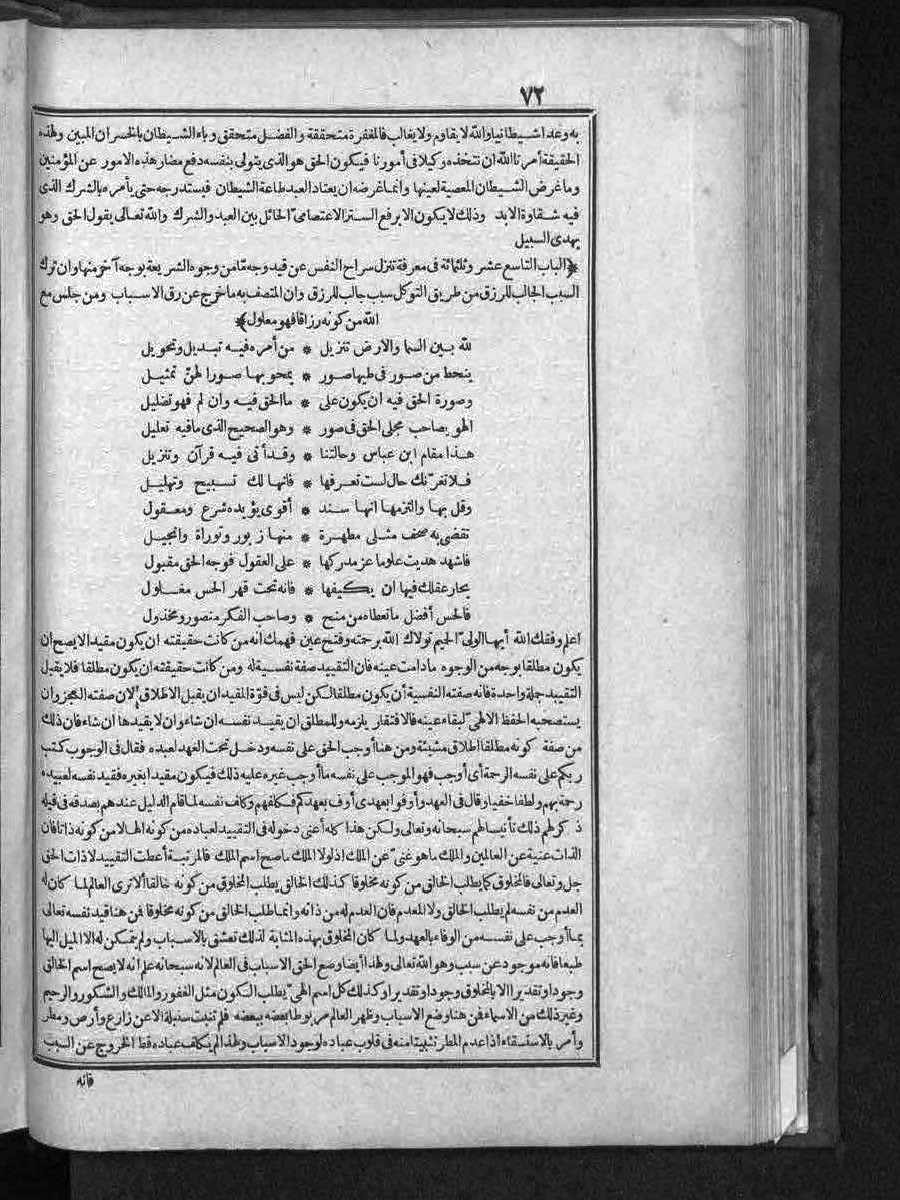 ٧٢
به وعدا شيطانيا والله لا يقاوم ولا يغالب فالمغفرة متحققة والفضل متحقق وباء الشيطان بالخسران المبين ولهذه
الحقيقة أمرنا الله ان نتخذه وكيلا في أمورنا فيكون الحق هو الذي يتولى بنفسه دفع مضار هذه الامور عن المؤمنين
وما غرض الشيطان المعصية لعينها وانما غرضه ان يعتاد العبد طاعة الشيطان فيستدرجه حتى يأمره بالشرك الذي
فيه شقاوة الابد وذلك لا يكون الا برفع الستر الاعتصامي الحائل بين العبد والشرك والله تعالى يقول الحق وهو
يهدي السبيل
﴿الباب التاسع عشر وثلثمائة في معرفة تنزل سراح النفس عن قيد وجه مّا من وجوه الشريعة بوجه آخر منها وان ترك
السبب الجالب للرزق من طريق التوكل سبب جالب للرزق وان المتصف به ما خرج عن رق الاسباب ومن جلس مع
الله من كونه رزاقا فهو معلول﴾
لله بين السما والارض تنزيل * من أمره فيه تبديل وتحويل
ينحط من صور في طيها صور * يمحو بها صورا لهنّ تمثيل
وصورة الحق فيه ان يكون على * ما الحق فيه وان لم فهو تضليل
المحو يصاحب مجلى الحق في صور * وهو الصحيح الذي ما فيه تعليل
هذا مقام ابن عباس وحالتنا * وقد أتى فيه قرآن وتنزيل
فلا تغرّنك حال لست تعرفها * فانها لك تسبيح وتهليل
وقل بها والتزمها انها سند * أقوى يؤيده شرع ومعقول
تقضى به صحف مثلى مطهرة * منها زبور وتوراة وانجيل
فاشهد هديت علوما عز مدركها * على العقول فوجه الحق مقبول
يحار عقلك فيها ان يكيفها * فانه تحت قهر الحس مغلول
فالحس أفضل ما تعطاه من منح * وصاحب الفكر منصور ومخذول
اعلم وفقك الله أيها الولي الحميم تولاك الله برحمته وفتح عين فهمك انه من كانت حقيقته ان يكون مقيدا لا يصح ان
يكون مطلقا بوجه من الوجوه ما دامت عينه فان التقييد صفة نفسية له ومن كانت حقيقته ان يكون مطلقا فلا يقبل
التقييد جملة واحدة فانه صفته النفسية أن يكون مطلقا لكن ليس في قوّة المقيد ان يقبل الاطلاق لان صفته العجز وان
يستصحبه الحفظ الالهي لبقاء عينه فالافتقار يلزمه وللمطلق ان يقييد نفسه ان شاء وان لا يقيدها ان شاء فان ذلك
من صفة كونه مطلقا اطلاق مشيئة ومن هنا أوجب الحق على نفسه ودخل تحت العهد لعبده فقال في الوجوب كتب
ربكم على نفسه الرحمة أي أوجب فهو الموجب على نفسه ما أوجب غيره عليه ذلك فيكون مقيدا بغيره فقيد نفسه لعبيده
رحمة بهم ولطفا خفيا وقال في العهد وأوفوا بعهدي أوف بعهدكم فكلفهم وكلف نفسه لما قام الدليل عندهم بصدقه في قيله
ذكر لهم ذلك تأنيسا لهم سبحانه وتعالى ولكن هذا كله أعني دخوله في التقييد لعباده من كونه الها لا من كونه ذاتا فان
الذات غنية عن العالمين والملك ما هو غني عن الملك اذ لولا الملك ما صح اسم الملك فالمرتبة أعطت التقييد لا ذات الحق
جل وتعالى فالمخلوق كما يطلب الخالق من كونه مخلوقا كذلك الخالق يطلب المخلوق من كونه خالقا ألا ترى العالم لما كان له
العدم من نفسه لم يطلب الخالق ولا المعدم فان العدم له من ذاته وانما طلب الخالق من كونه مخلوقا فمن هنا قيد نفسه تعالى
بما أوجب على نفسه من الوفاء بالعهد ولما كان المخلوق بهذه المثابة لذلك تعشق بالاسباب ولم يتمكن له الا الميل اليها
طبعا فانه موجود عن سبب وهو الله تعالى ولهذا أيضا وضع الحق الاسباب في العالم لانه سبحانه علم انه لا يصح اسم الخالق
وجودا وتقديرا الا بالمخلوق وجودا وتقديرا وكذلك كل اسم الهي يطلب الكون مثل الغفور والمالك والشكور والرحيم
وغير ذلك من الاسماء فمن هنا وضع الاسباب وظهر العالم مربوطا بعضه ببعضه فلم تنبت سنبلة الا عن زارع وأرض ومطر
وأمر بالاستسقاء اذا عدم المطر تثبيتا منه في قلوب عباده لوجود الاسباب ولهذا لم يكلف عباده قط الخروج عن السبب
فانه